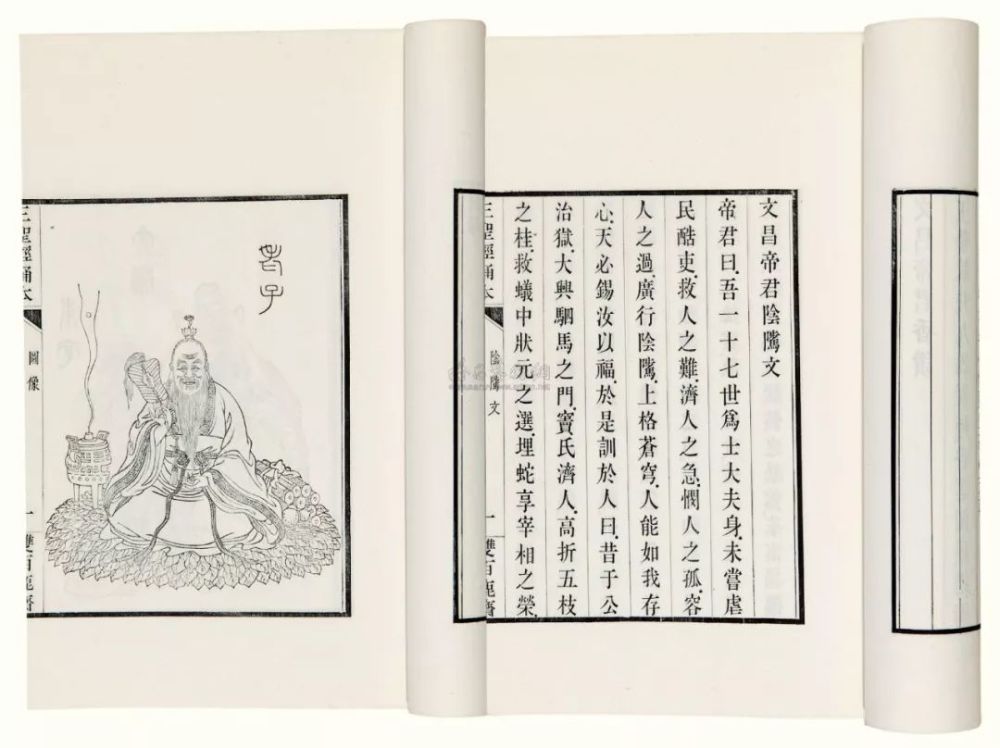 文昌帝君陰隲文
帝君曰、吾一十七世爲士大夫身、未嘗虐
民酷吏、救人之難、濟人之急、憫人之孤、容
人之過、廣行陰隲、上格蒼穹、人能如我存
心、天必錫汝以福、於是訓於人曰、昔于公
治獄、大興駟馬之門、竇氏濟人、高折五枝
之桂、救蟻中狀元之選、埋蛇享宰相之榮、
三聖經誦本
陰隲文
一
雙百鹿齋
老子
三聖經誦本
圖像
一
雙百鹿齋